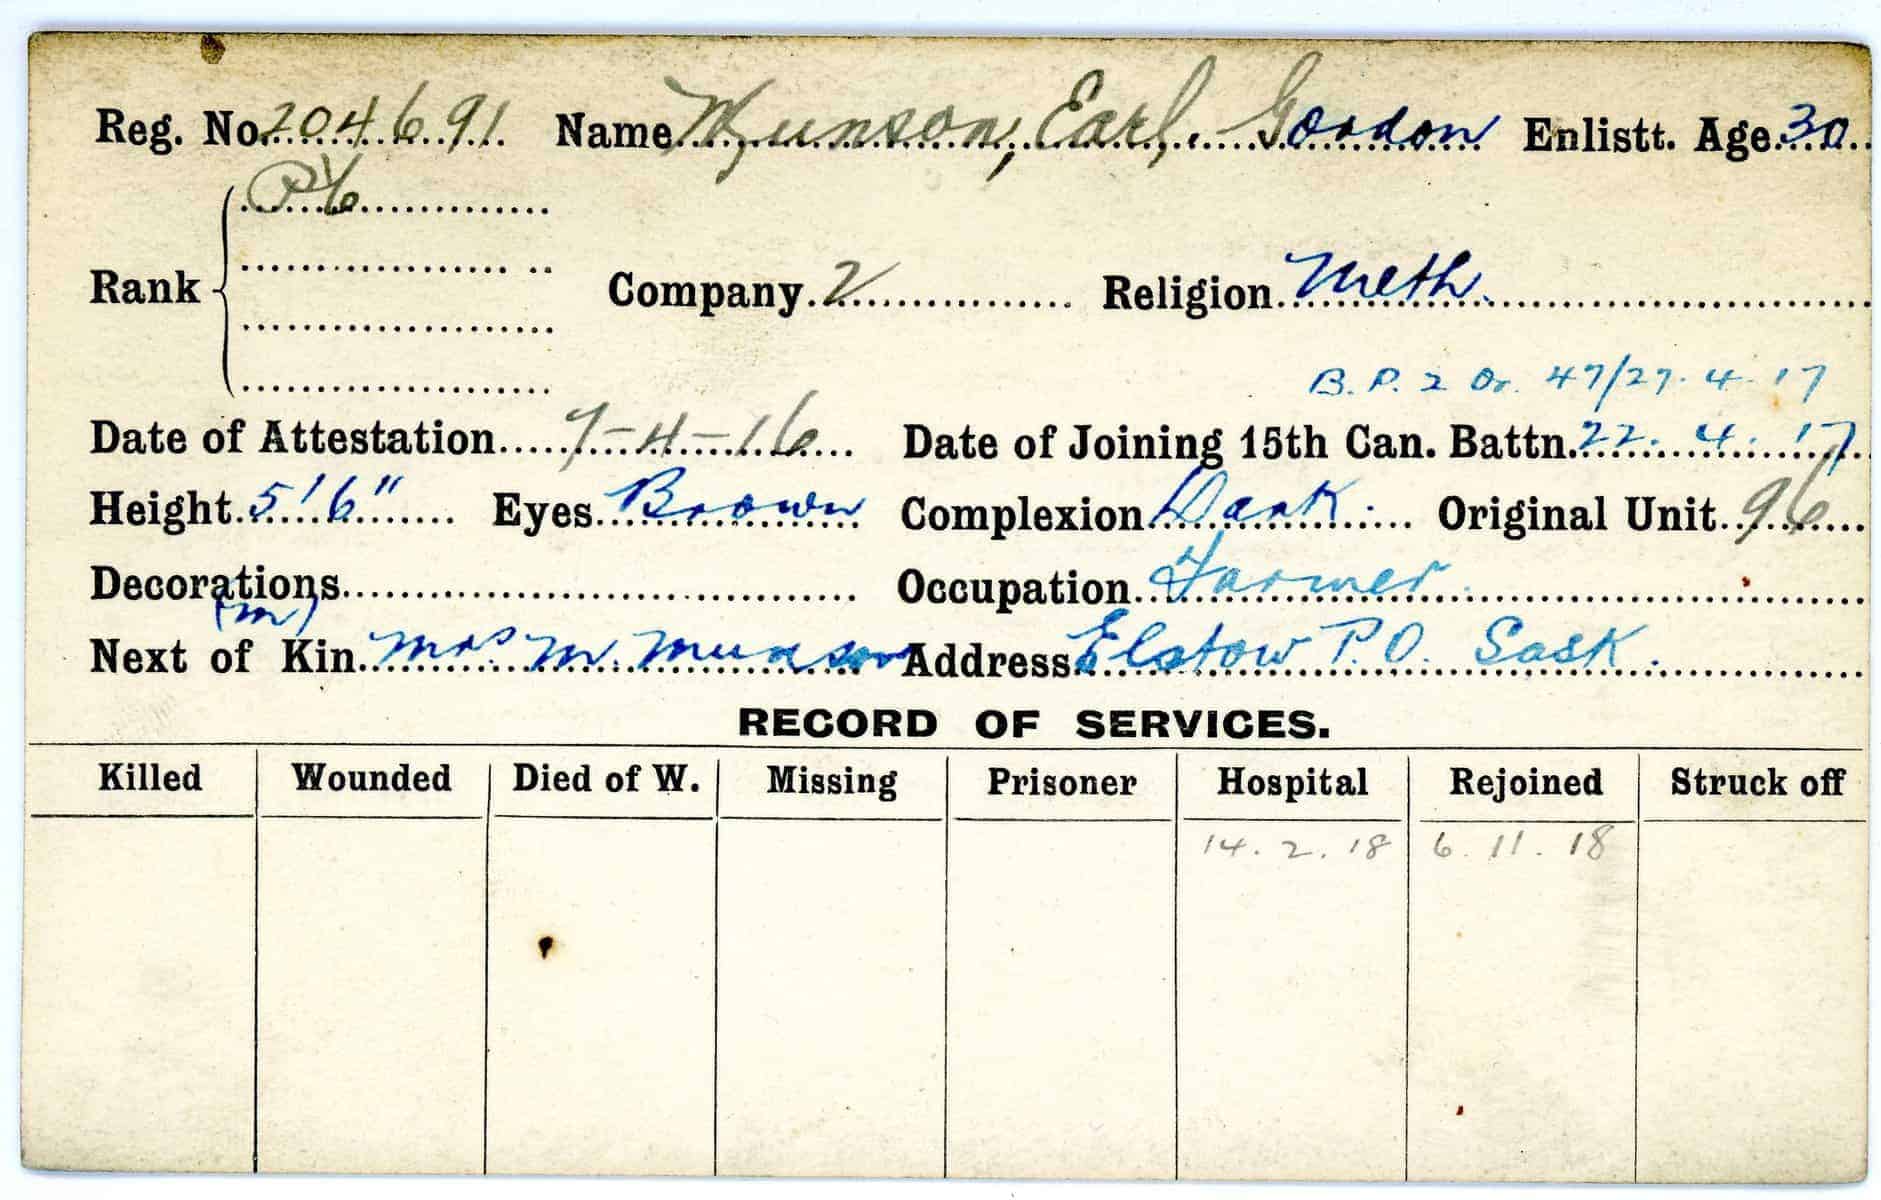 Reg. No. 204691 Name Munson, Earl, Gordon Enlistt. Age 30
Pte
Rank Company 2 Religion Meth.
B.P. 2 Or. 47/27.4.17
Date of Attestation 7-4-16 Date of Joining 15th Can. Battn. 22.4.17
Height 5'6" Eyes Brown Complexion Dark Original Unit 96
Decorations Occupation Farmer
(m)
Next of Kin Mrs M. Munson Address Elstow P.O. Sask.
RECORD OF SERVICES.
Killed Wounded Died of W. Missing Prisoner Hospital Rejoined Struck off
14.2.18 6.11.18